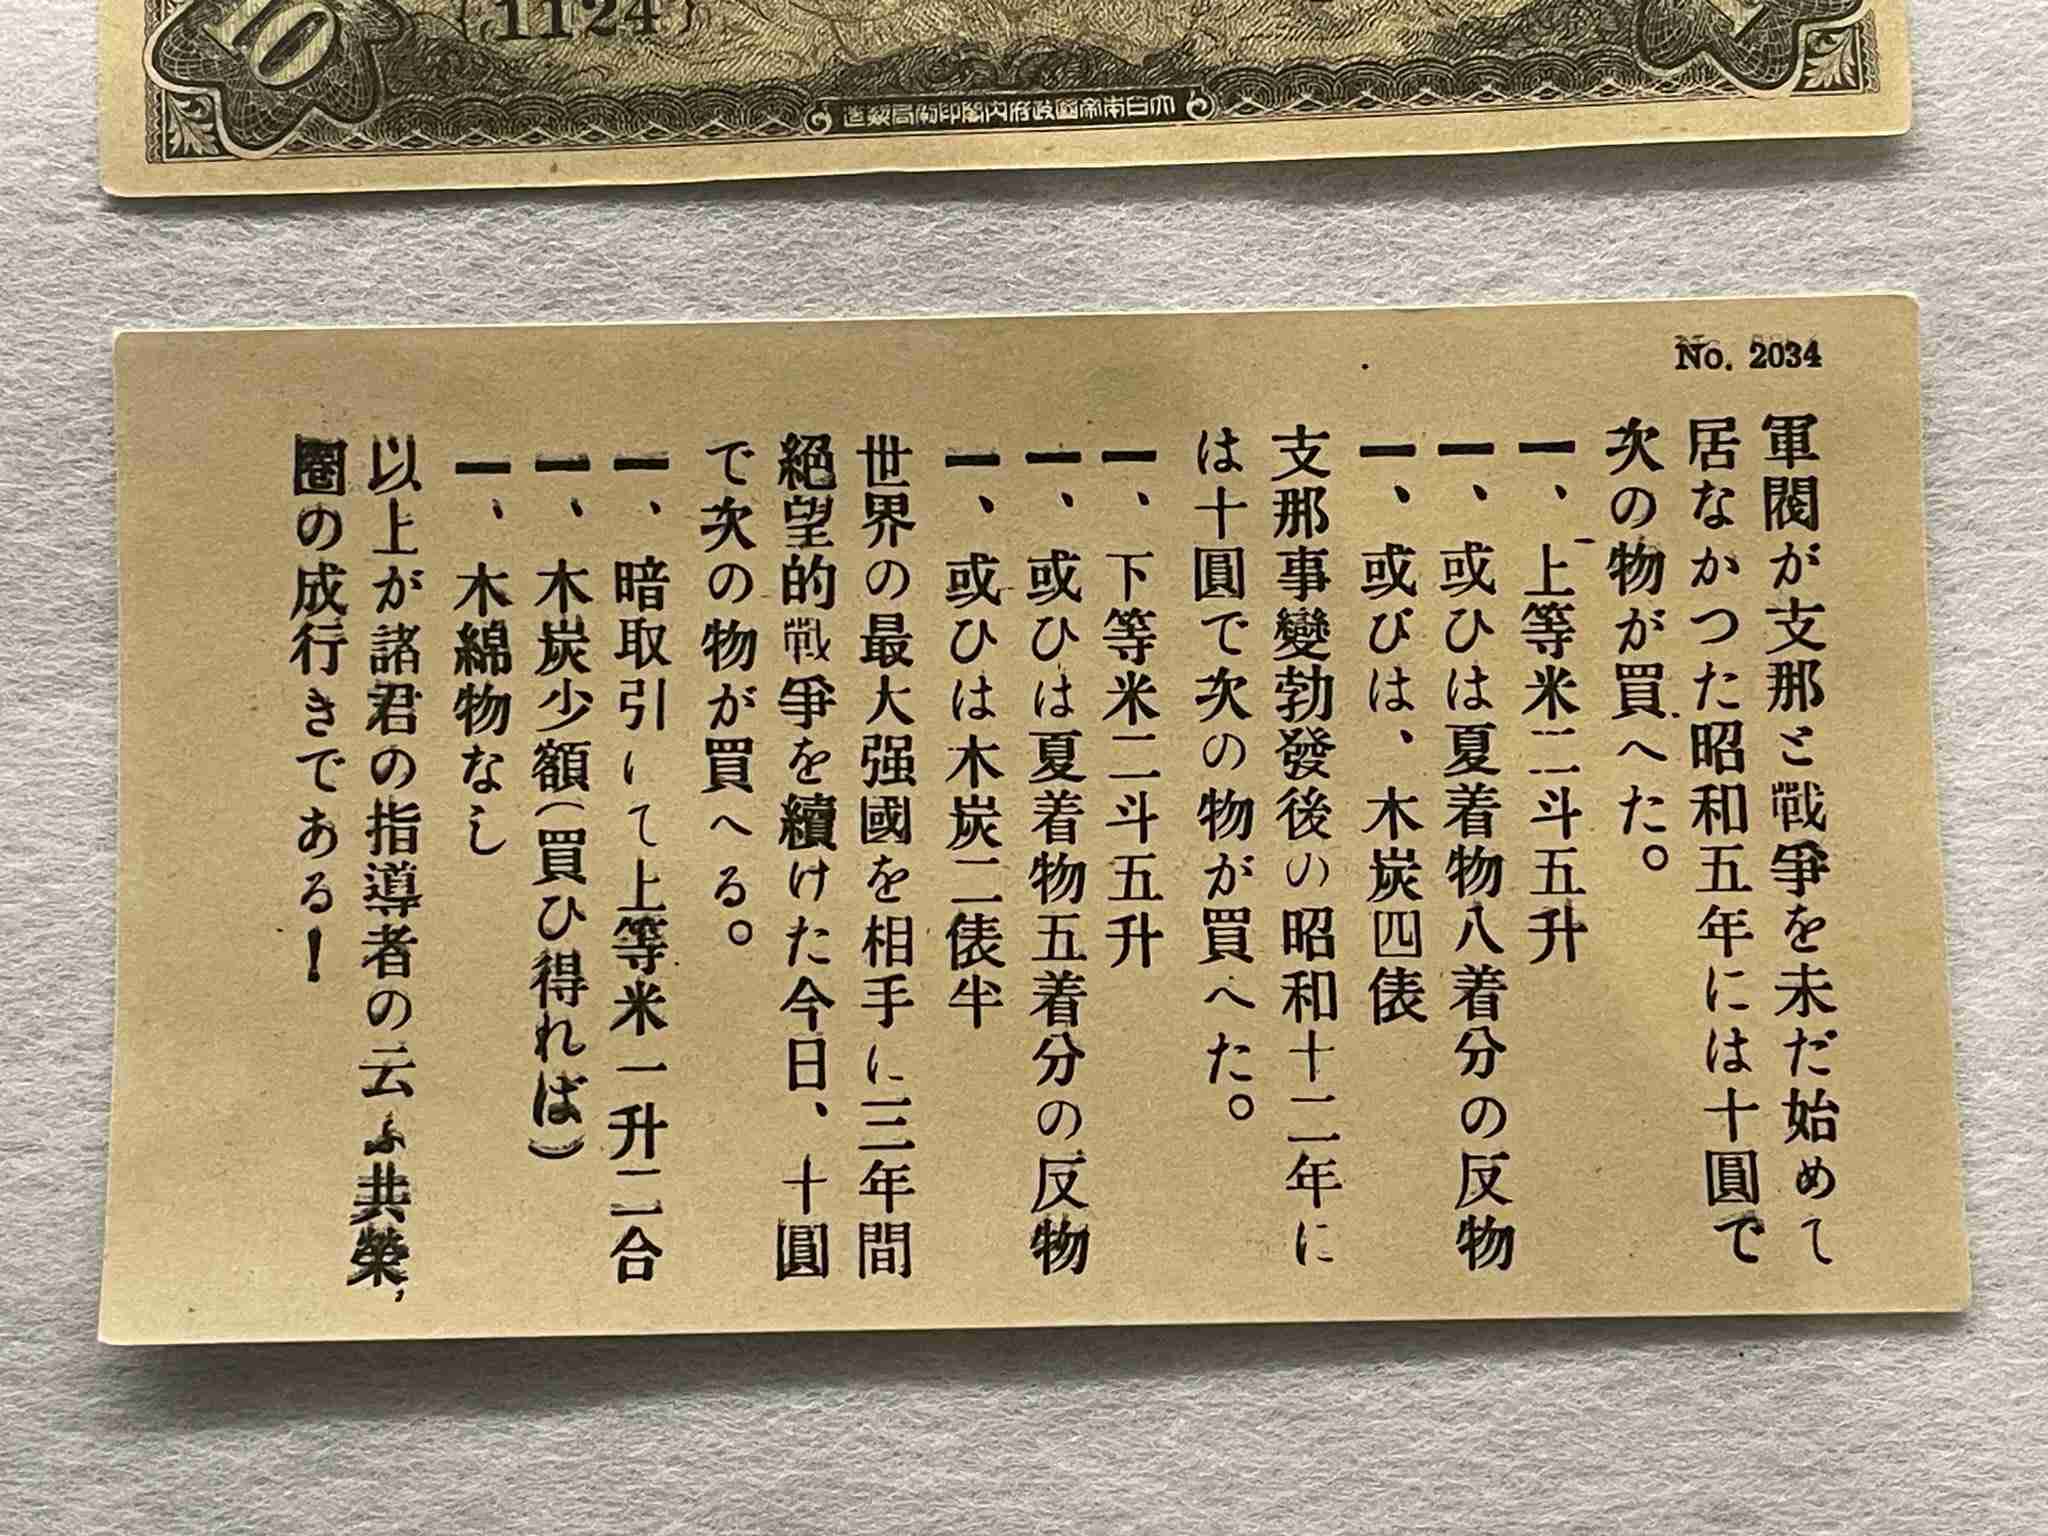 10
{1124}
大日本帝國政府内閣印刷局製造
No. 2034
軍閥が支那と戰爭を未だ始めて
居なかつた昭和五年には十圓で
次の物が買へた。
一、上等米二斗五升
一、或ひは夏着物八着分の反物
一、或びは、木炭四俵
支那事變勃發後の昭和十二年に
は十圓で次の物が買へた。
一、下等米二斗五升
一、或ひは夏着物五着分の反物
一、或ひは木炭二俵半
世界の最大强國を相手に三年間
絕望的戰爭を續けた今日、十圓
で次の物が買へる。
一、暗取引にて上等米一升二合
一、木炭少額(買ひ得れば)
一、木綿物なし
以上が諸君の指導者の云ふ共榮,
圈の成行きである!